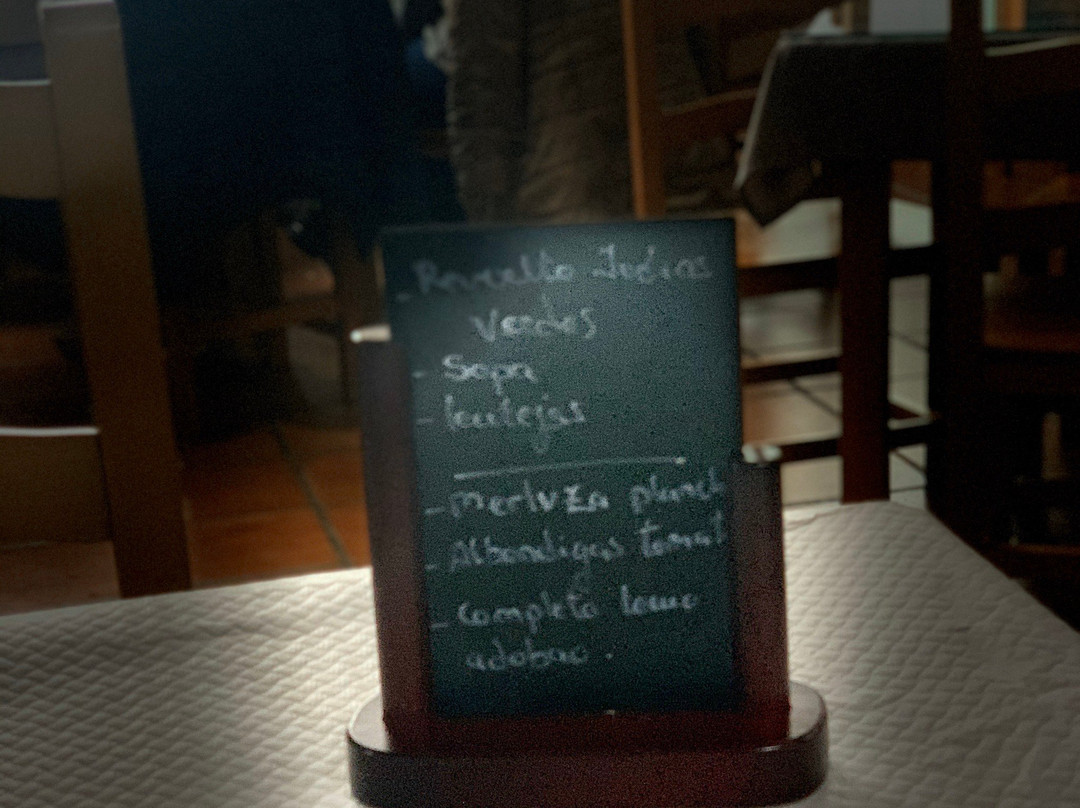 - Revuelto Judias
Verdes
- Sopa
- lentejas
- Merluza planch
- Albondigas tomat
- Completo lomo
adobao.